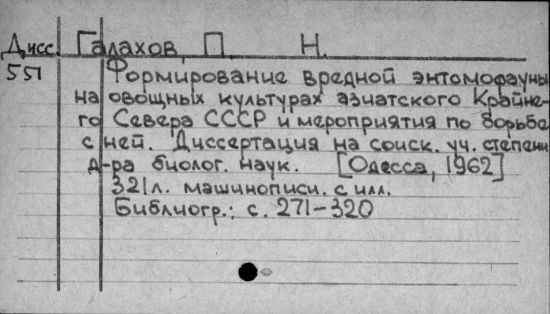 Дисс. Галахов, П. Н.
551 Формирование вредной энтомофауны
на овощных культурах азиатского Крайне-
го Севера СССР и мероприятия по борьбе
с ней. Диссертация на соиск. уч. степени
д-ра биолог. наук. [Одесса, 1962]
321 л. машинописи. с илл.
Библиогр.: с. 271-320